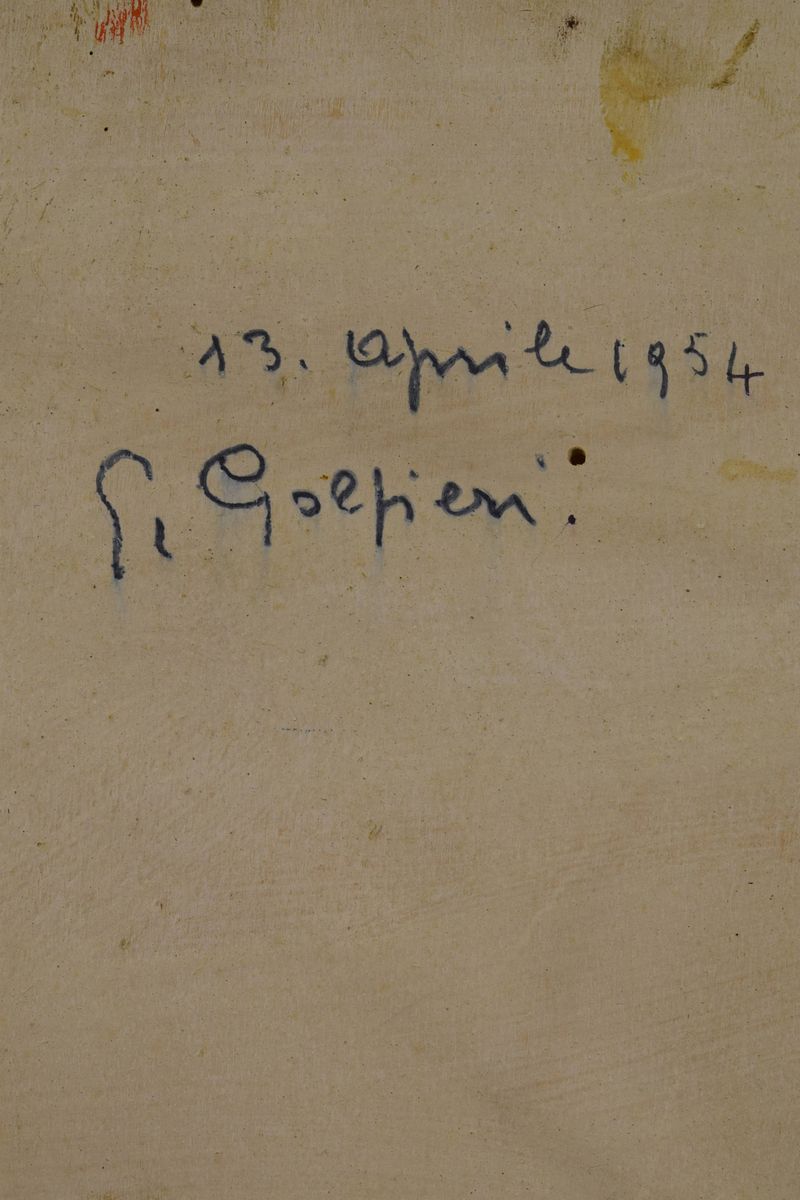 13. Aprile 1954
G. Golfieri.